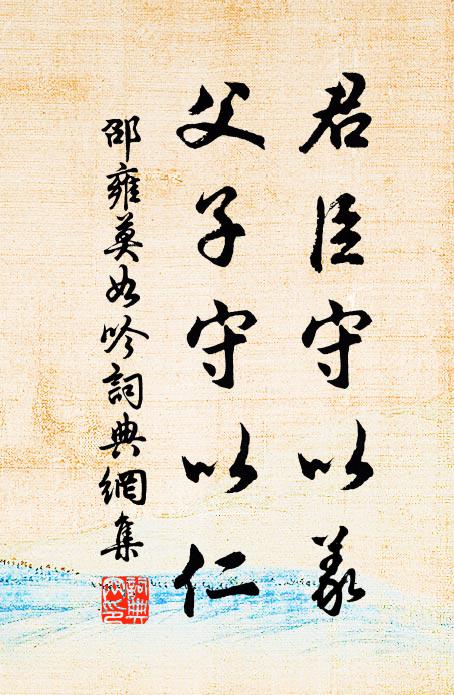 君臣守以義
父子守以仁
邵雍莫如吟詞典網集